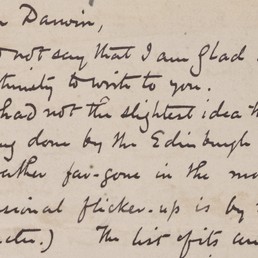 Darwin,
not say that I am glad
tunity to write to you.
had not the slightest idea th
ng done by the Edinburgh
ather far-gone in the ma
ssional flicker-up is by
cter.) The list of its